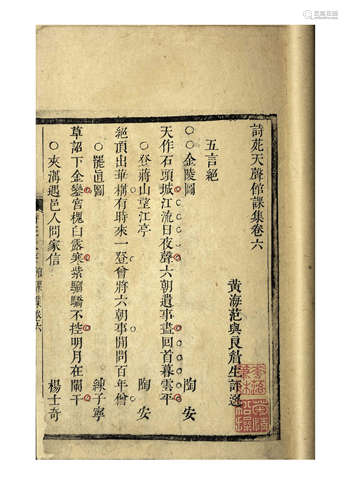 詩苑天聲館課集卷六
黃海范與良眉生評選
五言絕
○○金陵圖 陶安
天作石頭城江流日夜聲六朝遺事盡回首暮雲平
○登蔣山望江亭 陶安
絕頂出華構有時來一登會將六朝事閒問百年僧
○罷直圖 練子寧
草詔下金鑾宮槐白露寒紫騮驕不控明月在闌干
○夾溝遇邑人問家信 楊士奇